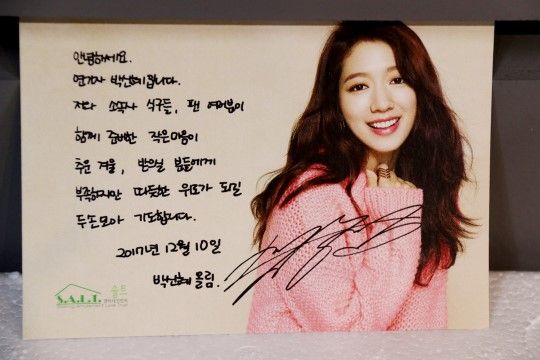 안녕하세요.
연기자 박신혜입니다.
저와 소속사 식구들, 팬 여러분이
함께 준비한 작은마음이
추운 겨울, 받으실 분들에게
부족하지만 따뜻한 위로가 되길
두손모아 기도합니다.
2017년 12월 10일
박신혜 올림.
솔트
S.A.L.T.